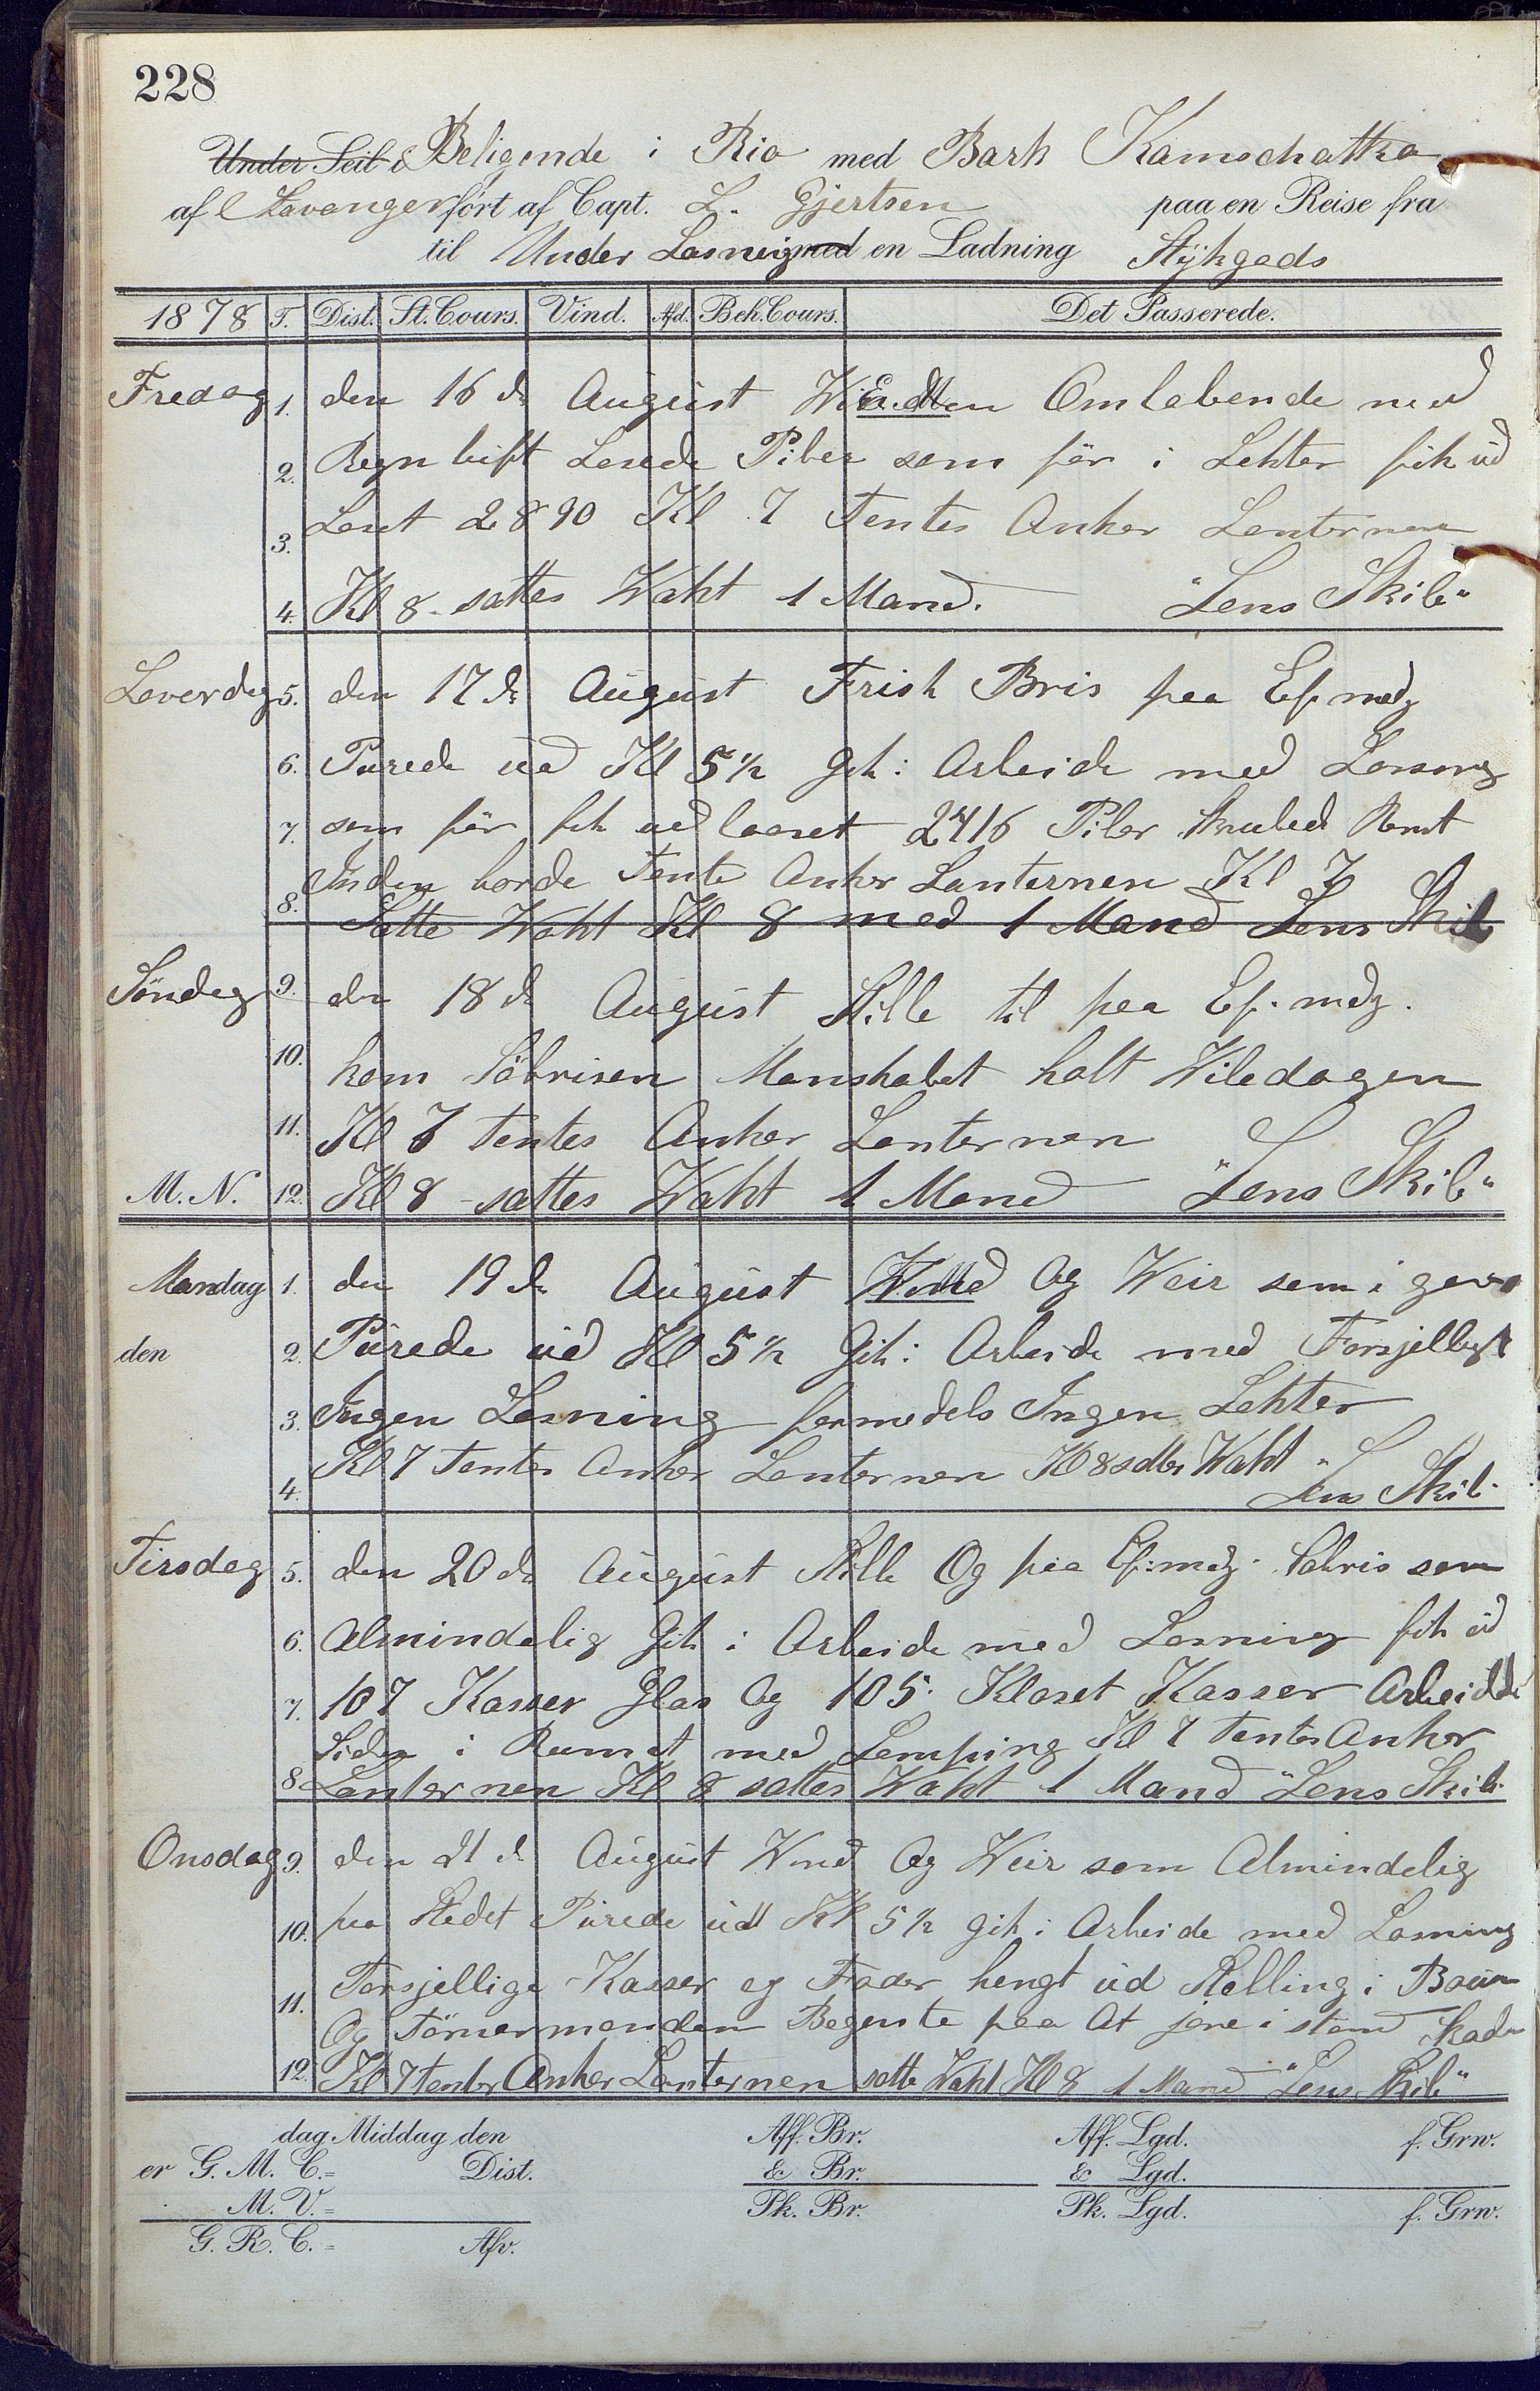 228
Under Seil Beligende i Rio med Bark Kamschatka
af Lavanger fört af Capt. L. Gjertsen paa en Reise fra
til Under Losneig med en Ladning Stÿkgods
1878 T. Dist. St. Cours. Vind. Afd. Beh. Cours. Det Passerede.
Fredag 1. den 16 de August Omlebende med
2. Regn luft Losede Piber som för i Lekter fik ud
3. Loset 2890 Kl 7 Tentes Anker Lenternen
4. Kl 8 sattes Waht 1 Mand. "Lens Skib"
Loverdag 5. den 17 de August Frisk Bris paa Ef. medg
6. Purede ud Kl 5 1/2 Gik i Arbeide med Losong
7. som för fik ud loset 2416 Piber
8. Inden borde Tente Anker Lanternen Kl 7
Satte Waht Kl 8 med 1 Mand Lens Skib
Söndag 9. den 18 de August Stille til paa Ef. medg.
10. kom Söbrisen Manskabet holt Wiledagen
11. Kl 7 tentes Anker Lenternen
M. N. 12. Kl 8 sattes Waht 1 Mand "Lens Skib"
Mandag 1. den 19 de August Wind Og Weir som i gaar
den 2. Purede ud Kl 5 1/2 Gik i Arbeide med Forsjelligt
3. Ingen Losning formedels Ingen Lekter
4. Kl 7 Tentes Anker Lenternen Kl 8 sattes Waht "
Lens Skib
Tirsdag 5. den 20 de August Stille Og paa Ef: medg. Sobris som
6. Almindelig Gik i Arbeide med Losning fik ud
7. 107 Kasser Glas Og 105 Kloset Kasser Arbeidde
Siden i Rumet med Lemping Kl 7 tentes Anker
8. Lanternen Kl 8 sattes Waht 1 Mand "Lens Skib
Onsdag 9. den 21 de August Wind Og Weir som Almindelig
10. paa Stedet Purede ud Kl 5 1/2 gik i Arbeide med Losning
11. Forsjellige Kasser og Fader hengt ud Stelling i Boun
Og Tömermanden Begente paa At jöre i stand Skaden
12. Kl 7 tentes Anker Lanternen satte Waht Kl 8 1 Mand "Lens Skib"
dag Middag den Aff. Br. Aff. Lgd. f. Grw.
er G. M. C.= Dist. & Br. & Lgd.
M. V.= Pk. Br. Pk. Lgd. f. Grw.
G. R. C.= Afv.